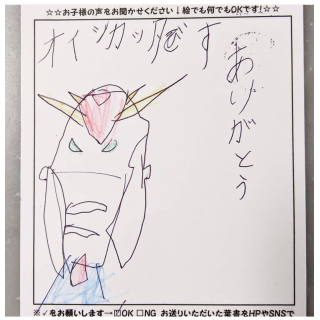 ☆☆お子様の声をお聞かせください↓絵でも何でもOKです!☆☆
オイシカッタです
ありがとう
※✓をお願いします→☑OK □NG お送りいただいた葉書をHPやSNSで